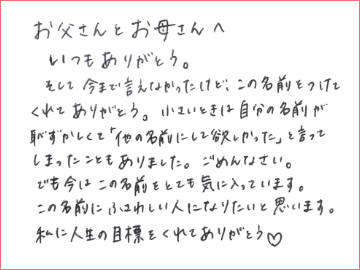 お父さんとお母さんへ
いつもありがとう。
そして今まで言えなかったけど、この名前をつけて
くれてありがとう。小さいときは自分の名前が
恥ずかしくて「他の名前にして欲しかった」と言って
しまったこともありました。ごめんなさい。
でも今はこの名前をとても気に入っています。
この名前にふさわしい人になりたいと思います。
私に人生の目標をくれてありがとう♡